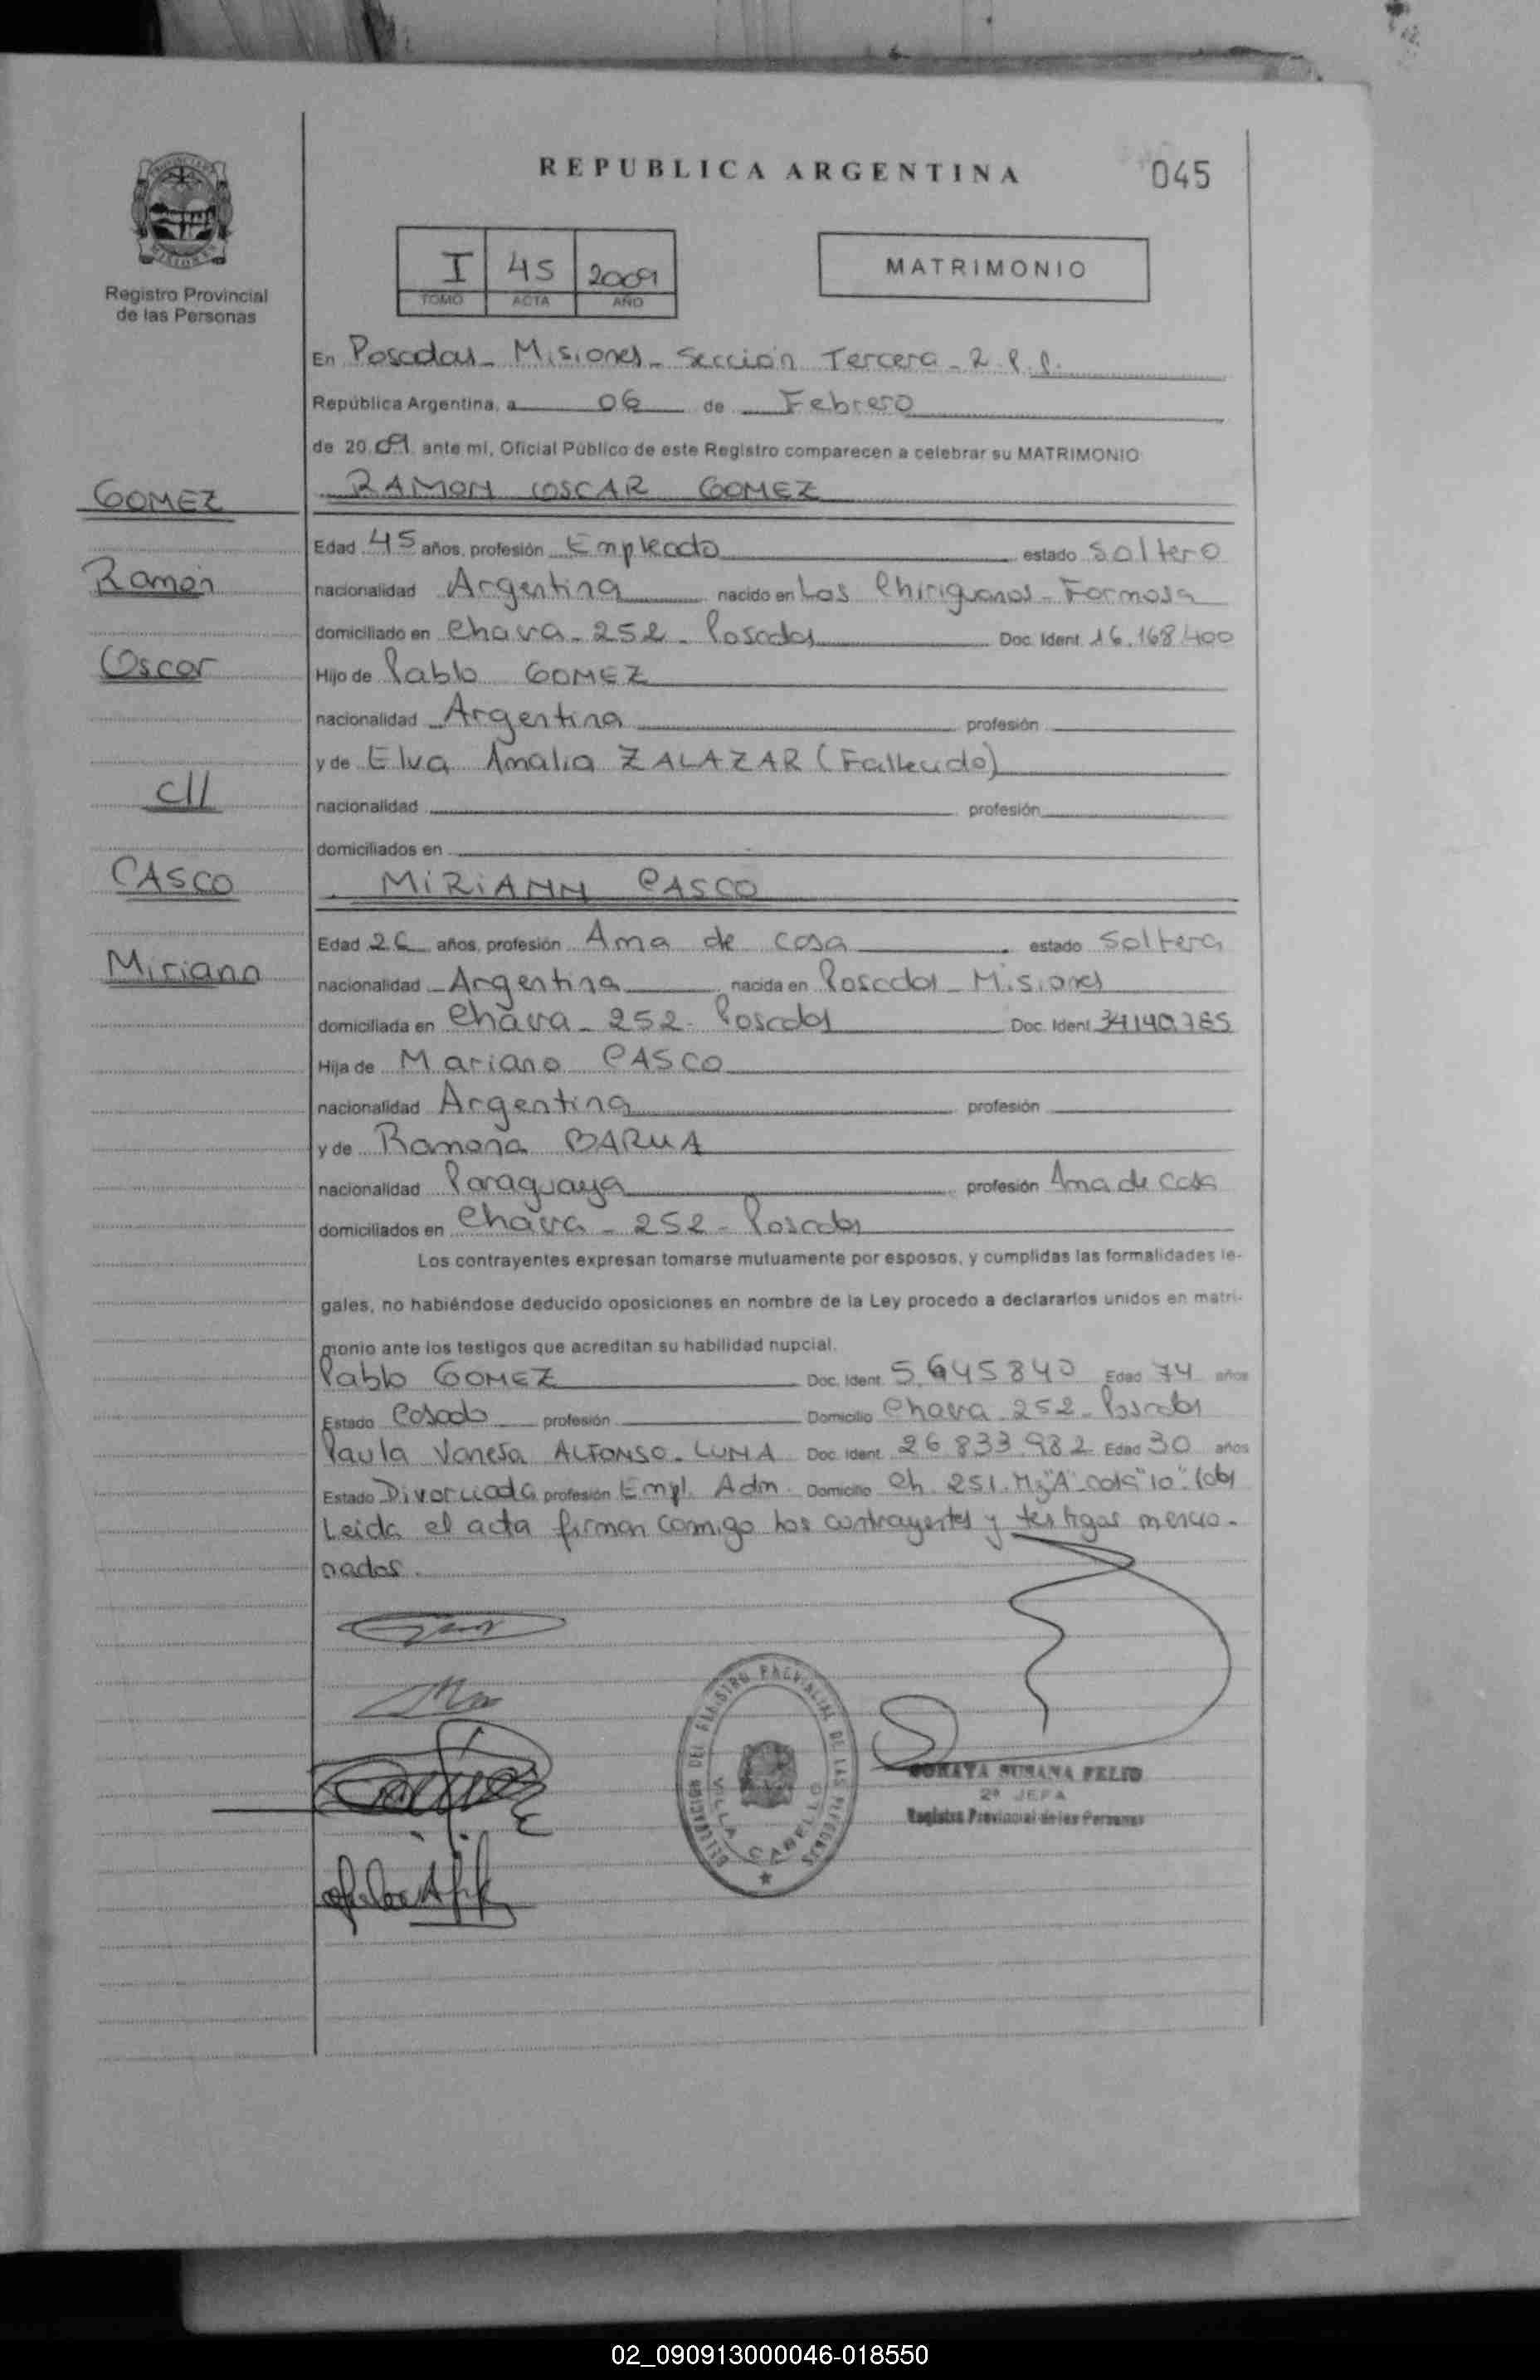 REPUBLICA ARGENTINA
045
Registro Provincial
de las Personas
I 45 2009
TOMO ACTA AÑO
MATRIMONIO
En Posadas - Misiones - Sección Tercera - R.P.P.
República Argentina, a 06 de Febrero
de 2009 ante mí, Oficial Público de este Registro comparecen a celebrar su MATRIMONIO
GOMEZ
RAMON OSCAR GOMEZ
Edad 45 años, profesión Empleado estado Soltero
Ramón
nacionalidad Argentina nacido en Los Chiriguanos - Formosa
domiciliado en Chava - 252 - Posadas Doc. Ident. 16.168.400
Oscar
Hijo de Pablo GOMEZ
nacionalidad Argentina profesión
y de Elva Amalia ZALAZAR (Fallecido)
c//
nacionalidad profesión
domiciliados en
CASCO
MIRIANN CASCO
Edad 26 años, profesión Ama de casa estado Soltera
Miriann
nacionalidad Argentina nacida en Posadas - Misiones
domiciliada en Chava - 252 - Posadas Doc. Ident. 34.140.785
Hija de Mariano CASCO
nacionalidad Argentina profesión
y de Ramona BARUA
nacionalidad Paraguaya profesión Ama de casa
domiciliados en Chava - 252 - Posadas
Los contrayentes expresan tomarse mutuamente por esposos, y cumplidas las formalidades le-
gales, no habiéndose deducido oposiciones en nombre de la Ley procedo a declararlos unidos en matri-
monio ante los testigos que acreditan su habilidad nupcial.
Pablo GOMEZ Doc. Ident. 5.645840 Edad 74 años
Estado Casado profesión Domicilio Chava 252 - Posadas
Paula Vanesa ALFONSO - LUNA Doc. Ident. 26.833.982 Edad 30 años
Estado Divorciada profesión Empl. Adm. Domicilio Ch. 251. Mz "A" casa "10"
Leida el acta firman comigo los contrayentes y testigos mencio-
nados.
DELEGACION DEL REGISTRO PROVINCIAL DE LAS PERSONAS
VILLA CABELLO
SORAYA SUSANA FELIS
2ª JEFA
Registro Provincial de las Personas
02_090913000046-018550